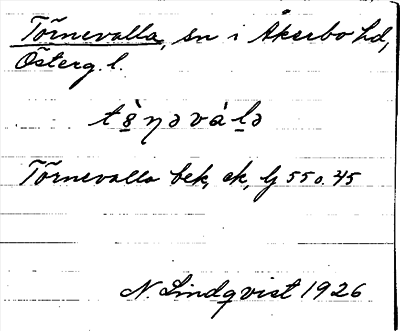 Törnevalla, sn i Åkerbo hd,
Österg. l.
tö̀ṇəváḷə
Törnevalla bek, ek, lj 55 o. 45
N. Lindqvist 1926